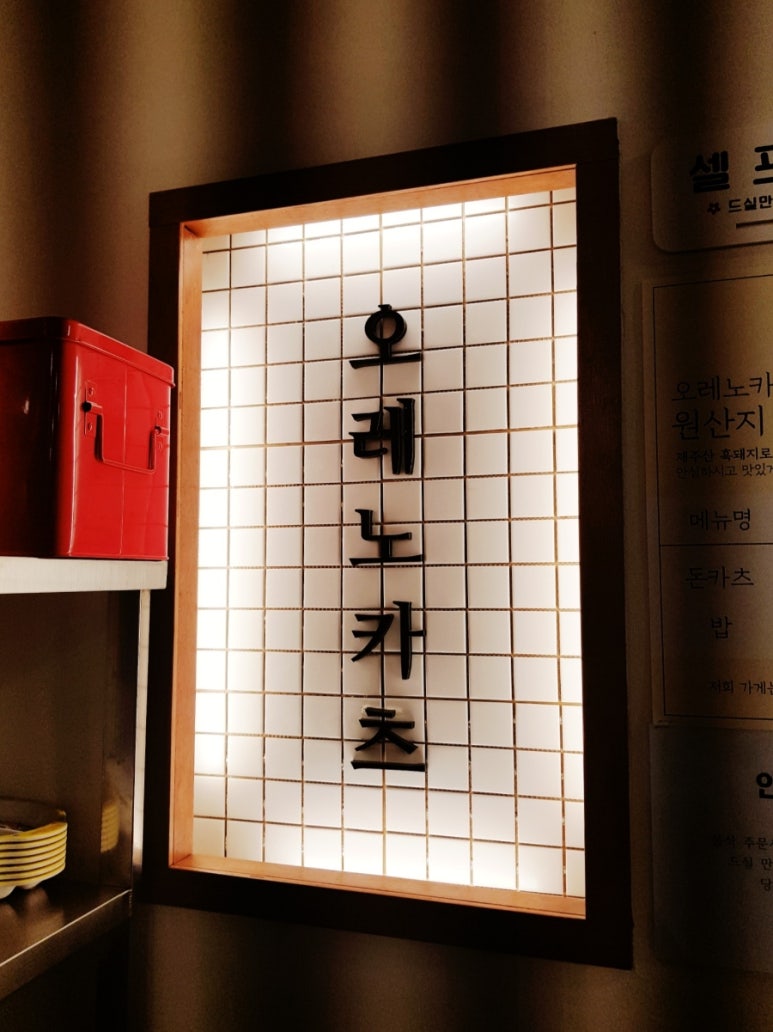 오레노카츠
셀프
드실만
오레노카
원산지
제주산 흑돼지로
안심하시고 맛있게
메뉴명
돈카츠
밥
저희 가게는
주문
드실 만